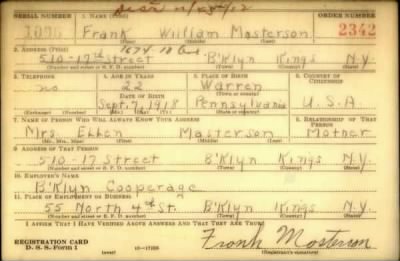 SERIAL NUMBER 1. NAME (Print) ORDER NUMBER
1096 Frank William Masterson 2342
(First) (Middle) (Last)
2. ADDRESS (Print)
510-17th Street B'Klyn Kings N.Y.
(Number and street or R. F. D. number) (Town) (County) (State)
3. TELEPHONE 4. AGE IN YEARS 5. PLACE OF BIRTH 6. COUNTRY OF CITIZENSHIP
no 22 Warren
DATE OF BIRTH (Town or county)
Sept. 7, 1918 Pennsylvania U.S.A.
(Exchange) (Number) (Mo.) (Day) (Yr.) (State or country)
7. NAME OF PERSON WHO WILL ALWAYS KNOW YOUR ADDRESS 8. RELATIONSHIP OF THAT PERSON
Mrs. Ellen Masterson Mother
(Mr., Mrs., Miss) (First) (Middle) (Last)
9. ADDRESS OF THAT PERSON
510-17 Street B'Klyn Kings N.Y.
(Number and street or R. F. D. number) (Town) (County) (State)
10. EMPLOYER'S NAME
B'Klyn Cooperage
11. PLACE OF EMPLOYMENT OR BUSINESS
55 North 4th St. B'Klyn Kings N.Y.
(Number and street or R. F. D. number) (Town) (County) (State)
I AFFIRM THAT I HAVE VERIFIED ABOVE ANSWERS AND THAT THEY ARE TRUE.
REGISTRATION CARD
D. S. S. Form 1 Frank Masterson
(Registrant's signature)